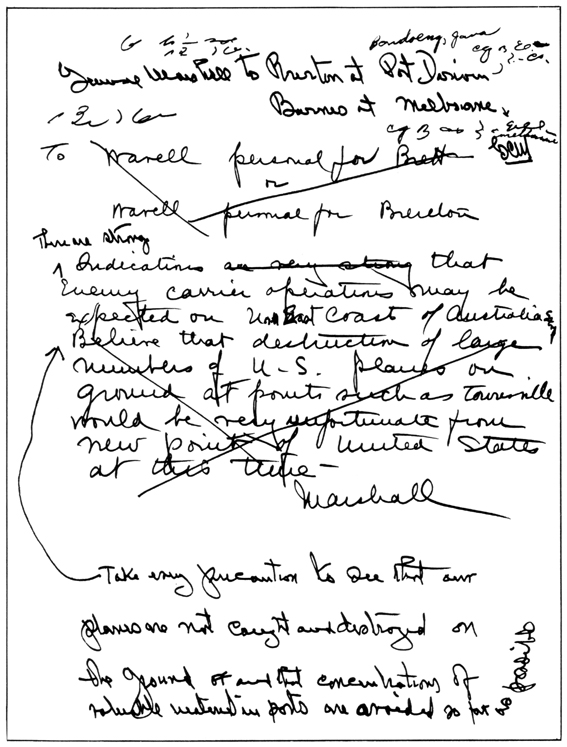 Bandoeng, Java
General Marshall to Brereton at Port Darwin
Barnes at Melbourne
To Wavell personal for Brett
or
Wavell personal for Brereton
There are strong
Indications are very strong that
Enemy carrier operations may be
expected on East Coast of Australia
Believe that destruction of large
numbers of U-S. planes on
ground at points such as Townsville
would be very unfortunate from
new point of United States
at this time -
Marshall
Take every precaution to see that our
planes are not caught and destroyed on
the ground and that concentrations of
valuable material in ports are avoided so far as possible